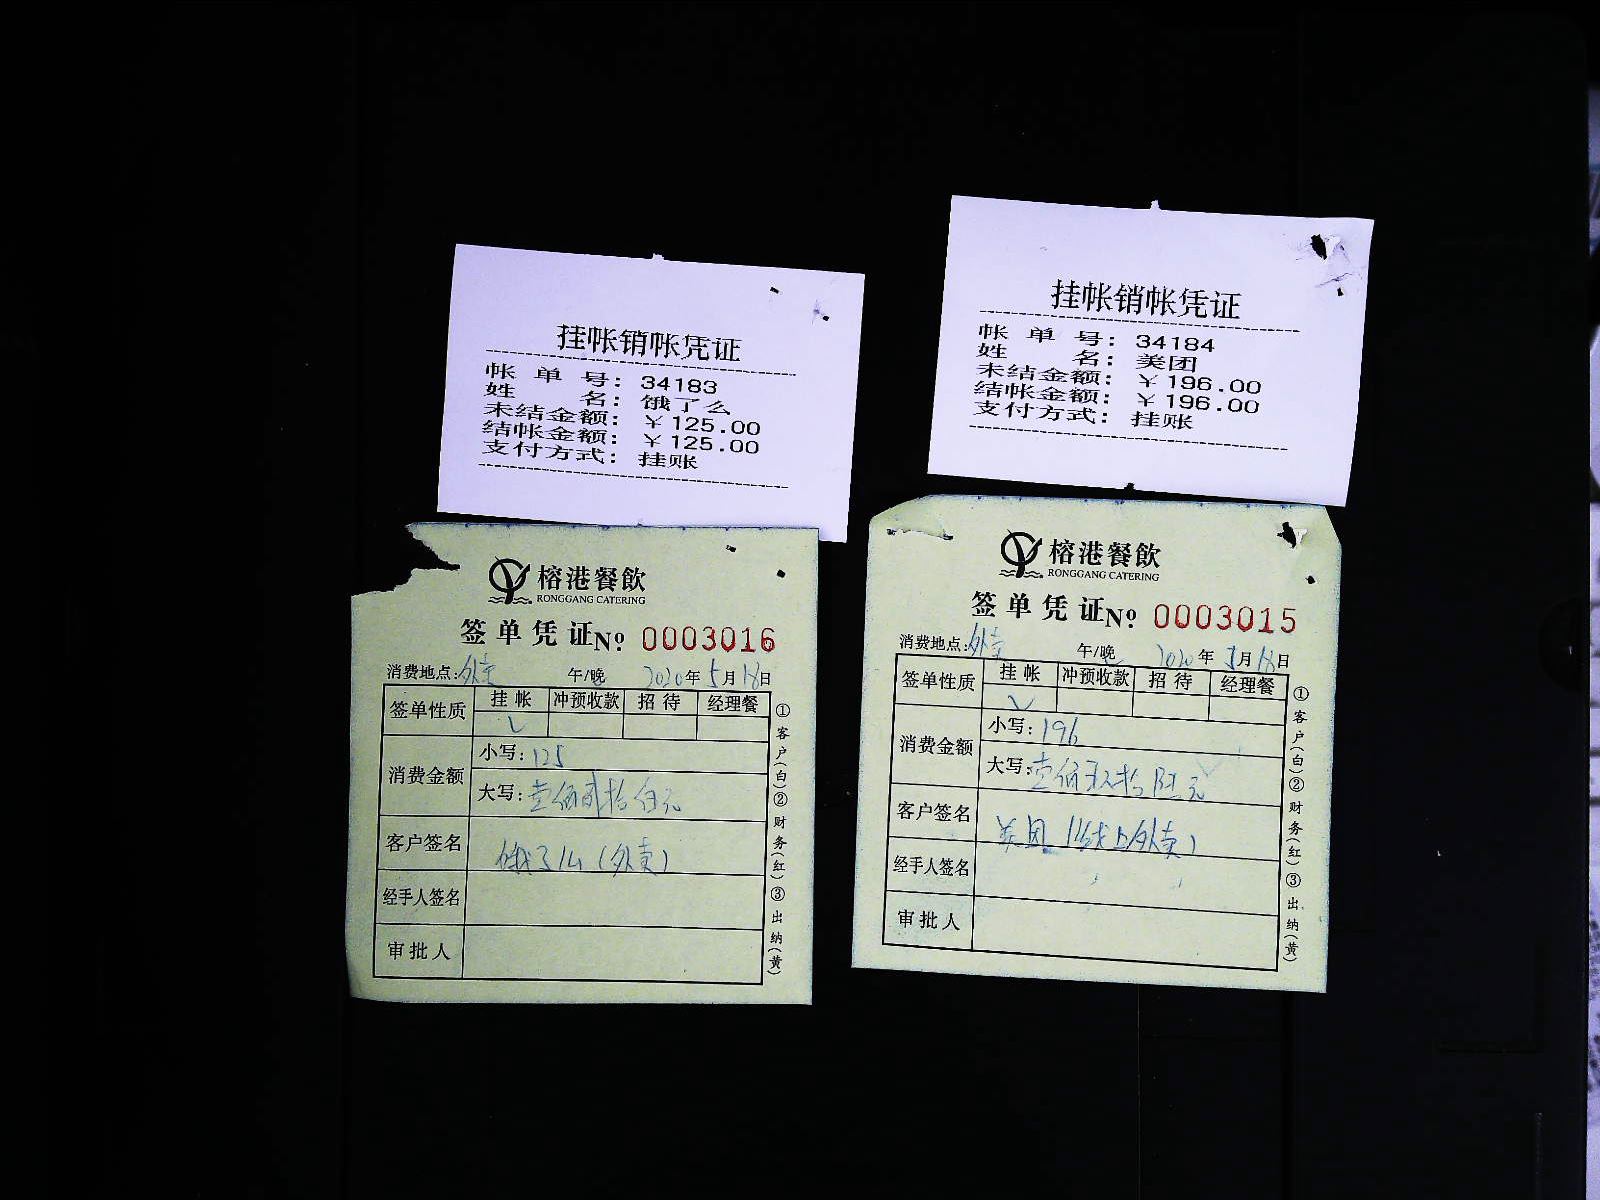 挂帐销帐凭证
帐单号：34183
姓名：饿了么
未结金额：￥125.00
结帐金额：￥125.00
支付方式：挂账
挂帐销帐凭证
帐单号：34184
姓名：美团
未结金额：￥196.00
结帐金额：￥196.00
支付方式：挂账
榕港餐飲
RONGGANG CATERING
签单凭证№ 0003016
消费地点：外卖 午/晚 2020年5月18日
签单性质 挂帐 冲预收款 招待 经理餐
√
消费金额 小写：125
大写：壹佰贰拾伍元
客户签名 饿了么（外卖）
经手人签名
审批人
①客户（白）②财务（红）③出纳（黄）
榕港餐飲
RONGGANG CATERING
签单凭证№ 0003015
消费地点：外卖 午/晚 2020年5月18日
签单性质 挂帐 冲预收款 招待 经理餐
√
消费金额 小写：196
大写：壹佰玖拾陆元
客户签名 美团（线上外卖）
经手人签名
审批人
①客户（白）②财务（红）③出纳（黄）